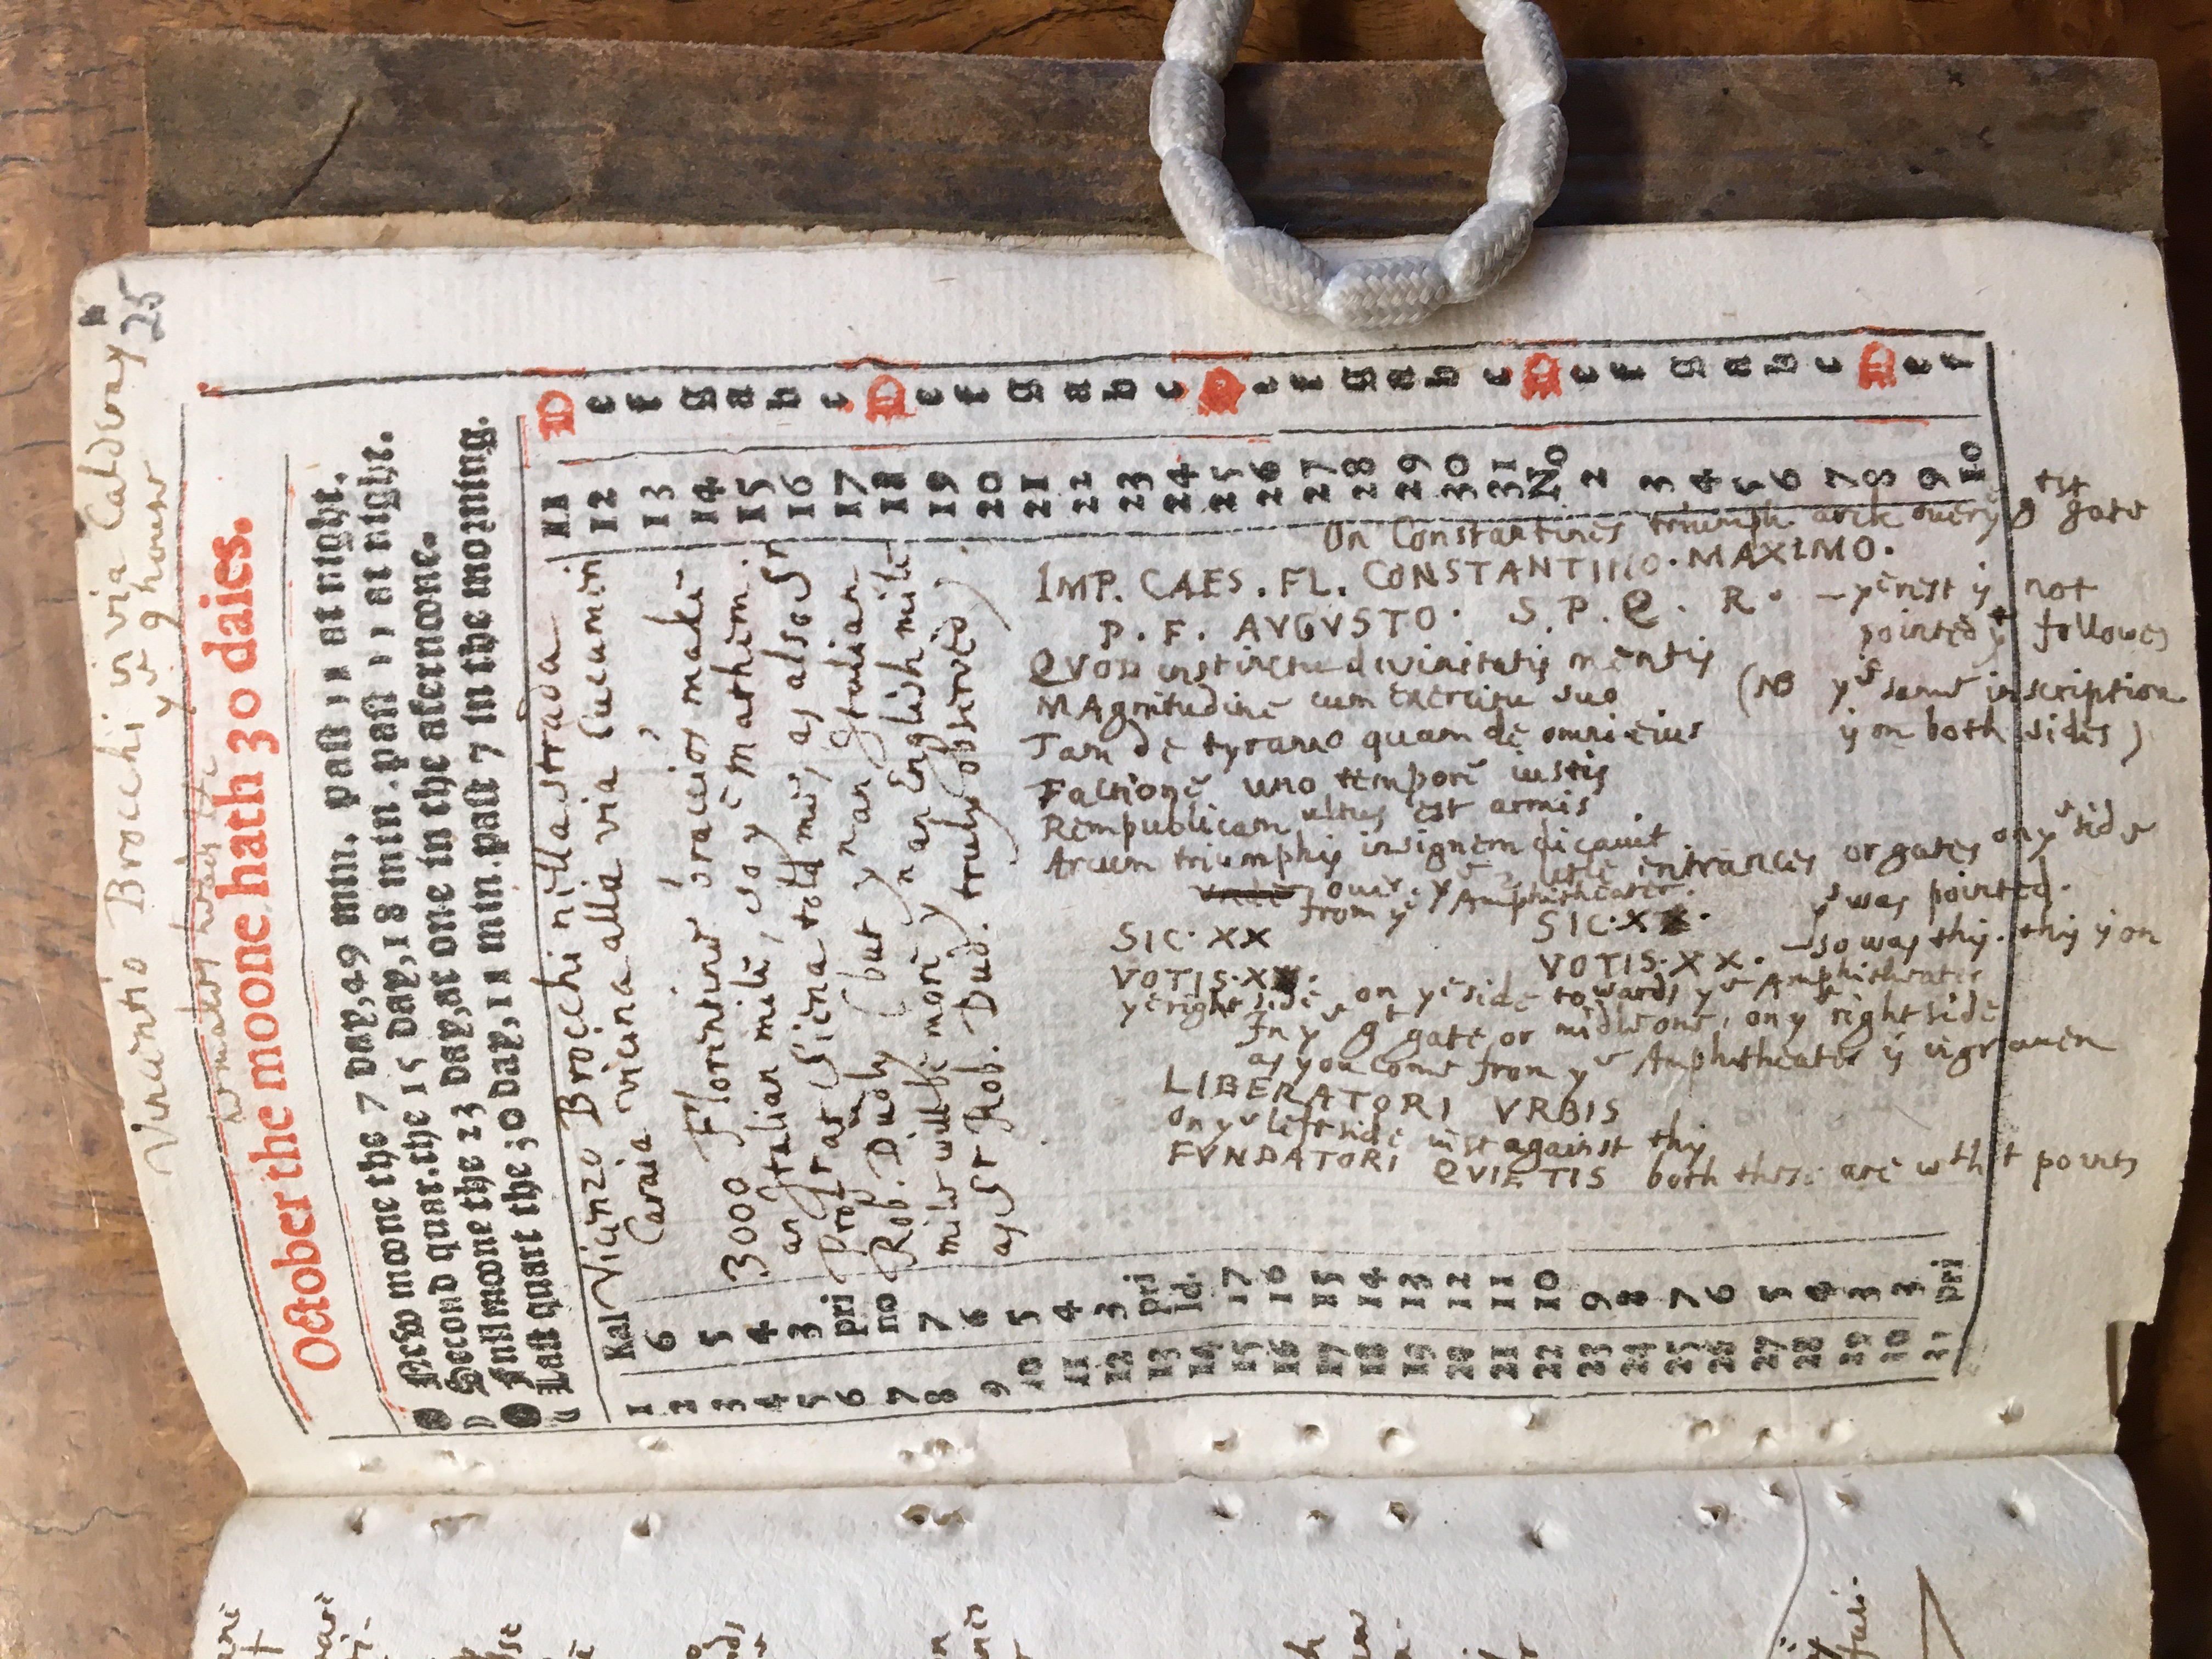 25
Vincentio Brocchi in via Caldoray
yᵉ 9 house
October the moone hath 30 daies.
New moone the 7 day, 49 min. past 11 at night.
Second quar. the 15 day, 18 min. past 11 at night.
Full moone the 23 day, at one in the afternoone.
Last quart the 30 day, 11 min. past 7 in the morning.
1 Kal 11 D
2 6 12 e
3 5 13 f
4 4 14 g
5 3 15 a
6 pri 16 b
7 no 17 c
8 7 18 D
9 6 19 e
10 5 20 f
11 4 21 g
12 3 22 a
13 pri 23 b
14 Id. 24 c
15 17 25 D
16 16 26 e
17 15 27 f
18 14 28 g
19 13 29 a
20 12 30 b
21 11 31 c
22 10 No D
23 9 2 e
24 8 3 f
25 7 4 g
26 6 5 a
27 5 6 b
28 4 7 c
29 3 8 D
30 3 9 e
31 pri 10 f
Vicenzo Brocchi nella strada
Caraia vicina alla via Cucumin
3000 Florentine braccios make
an Italian mile, so yᵉ mathem.
Prof at Siena told me, as also Sr
Rob. Dudly (but yⁿ an Italian
mile will be more yⁿ an English mile
as Sr Rob. Dud. truly observed)
On Constantines triumph arch over yᵉ gᵗ gate
IMP. CAES. FL. CONSTANTINO. MAXIMO.
P. F. AVGVSTO. S. P. Q. R. – yᵉ rest is not
pointed yᵗ followes
QVOD instinctu divinitatis mentis
MAgnitudine cum exercitu suo (NB yᵉ same inscription
Tam de tyranno quam de omni eius is on both sides)
Factione uno tempore iustis
Rempublicam ultus est armis
Arcum triumphis insignem dicavit
over yᵉ 2 little entrances or gates on yᵉ side
from yᵉ Amphitheater.
SIC. XX SIC. XX. was pointed.
VOTIS. XX. VOTIS. XX. – so was this. this is on
yᵉ right side on yᵉ side towards yᵉ Amphitheater
In yᵉ gᵗ gate or midle one, on yᵉ right side
as you come from yᵉ Amphitheater is ingraven
LIBERATORI VRBIS
on yᵉ left side iust against this
FVNDATORI QVIETIS both these are wᵗʰᵗ points